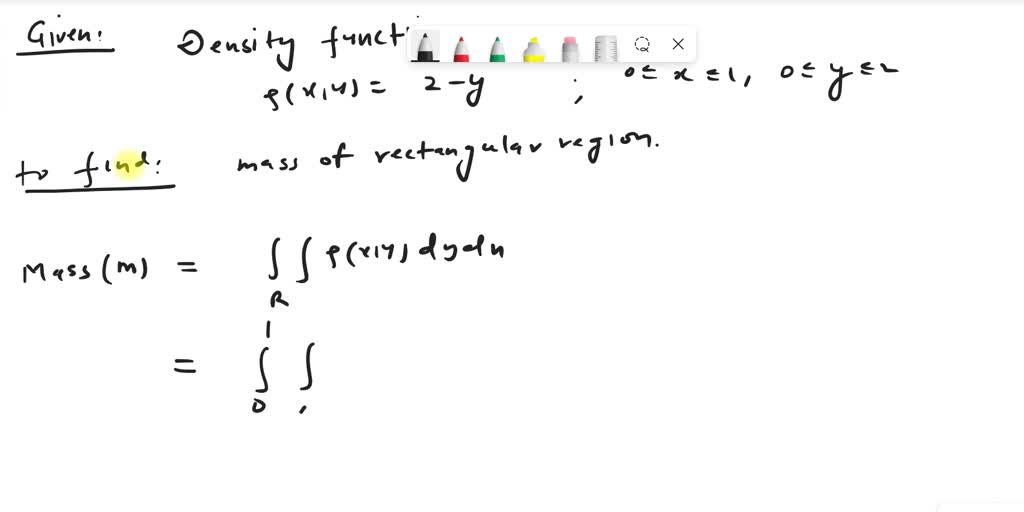 Given: Density functi
ρ(x,y) = 2-y ; 0≤ x ≤1, 0≤ y ≤2
to find: mass of rectangular region.
Mass(m) = ∫∫ ρ(x,y) dydx
R
= ∫₀¹ ∫